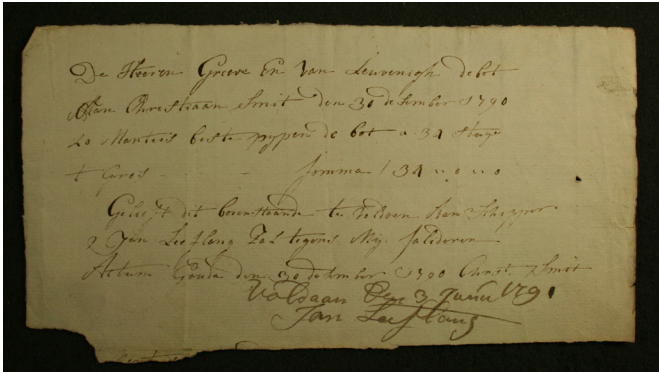 De Heeren Greeve En Van Leuvenigh debet
Aan Christiaan Smit den 30 desember 1790
20 Manties beste pypen de bot a 34 Stuye
t gros - - somma f 34 " 0 " 0
Gelieft dit bovenstaande te voldoen Aan Schipper
Jan Leeflang Zal tegens Mij valideren
Actum Gouda den 30 desember 1790 Chrst. Smit
Voldaan Den 3 Janu 1791
Jan Leeflang